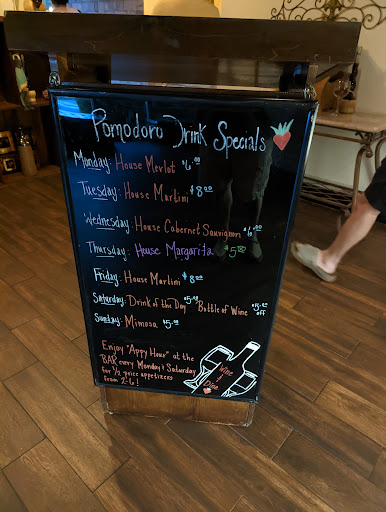 Pomodoro Drink Specials
Monday: House Merlot $6.00
Tuesday: House Martini $8.00
Wednesday: House Cabernet Sauvignon $6.00
Thursday: House Margarita $5.00
Friday: House Martini $8.00
Saturday: Drink of the Day $5.00 Bottle of Wine off
Sunday: Mimosa $5.00
Enjoy "Appy Hour" at the
BAR every Monday & Saturday
for 1/2 price appetizers
from 2-6!
Wine
&
Dine